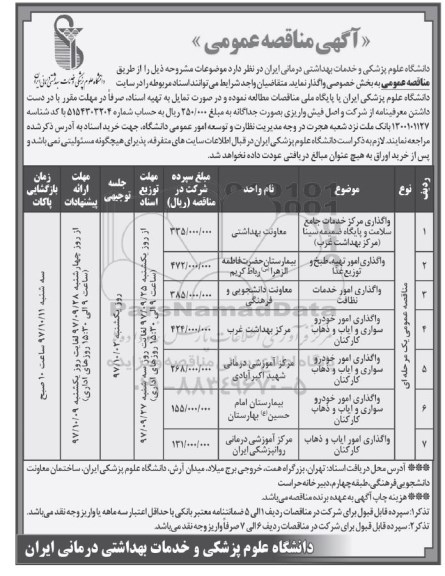 « آگهی مناقصه عمومی »
دانشگاه علوم پزشکی و خدمات بهداشتی درمانی ایران در نظر دارد موضوعات مشروحه ذیل را از طریق
مناقصه عمومی به بخش خصوصی واگذار نماید. متقاضیان واجد شرایط می‌توانند اسناد مربوطه را در سایت
دانشگاه علوم پزشکی ایران یا پایگاه ملی مناقصات مطالعه نموده و در صورت تمایل به تهیه اسناد، صرفاً در مهلت مقرر با در دست
داشتن معرفینامه از شرکت و اصل فیش واریزی بصورت جداگانه به مبلغ ۲۵۰/۰۰۰ ریال به حساب شماره ۵۱۵۴۳۰۳۲۰۴ با کد شناسه
۱۲۰۰۱۰۱۱۲۷ بانک ملت نزد شعبه هجرت در وجه مدیریت نظارت و توسعه امور عمومی دانشگاه، جهت خرید اسناد به آدرس ذکر شده
مراجعه نمایند. لازم به ذکر است دانشگاه علوم پزشکی ایران در قبال اطلاعات سایت های متفرقه، پذیرای هیچگونه مسئولیتی نمی‌باشد و
پس از خرید اوراق به هیچ عنوان مبالغ دریافتی عودت داده نخواهد شد.
ردیف نوع موضوع نام واحد مبلغ سپرده شرکت در مناقصه (ریال) مهلت توزیع اسناد جلسه توجیهی مهلت ارائه پیشنهادات زمان بازگشایی پاکات
مناقصه عمومی یک مرحله ای
۱ واگذاری مرکز خدمات جامع سلامت و پایگاه ضمیمه سینا (مرکز بهداشت غرب) معاونت بهداشتی ۳۳۵/۰۰۰/۰۰۰
۲ واگذاری امور تهیه، طبخ و توزیع غذا بیمارستان حضرت فاطمه الزهرا (س) رباط کریم ۴۷۲/۰۰۰/۰۰۰
۳ واگذاری امور خدمات نظافت معاونت دانشجویی و فرهنگی ۳۸۵/۰۰۰/۰۰۰
۴ واگذاری امور خودرو سواری و ایاب و ذهاب کارکنان مرکز بهداشت غرب ۴۲۴/۰۰۰/۰۰۰
۵ واگذاری امور خودرو سواری و ایاب و ذهاب کارکنان مرکز آموزشی درمانی شهید اکبر آبادی ۲۶۸/۰۰۰/۰۰۰
۶ واگذاری امور خودرو سواری و ایاب و ذهاب کارکنان بیمارستان امام حسین (ع) بهارستان ۱۵۵/۰۰۰/۰۰۰
۷ واگذاری امور ایاب و ذهاب کارکنان مرکز آموزشی درمانی روانپزشکی ایران ۱۳۱/۰۰۰/۰۰۰
از روز یکشنبه ۹۷/۰۹/۲۵ لغایت روز سه شنبه ۹۷/۰۹/۲۷
(ساعت ۹ الی ۱۵:۳۰ روزهای اداری)
روز یکشنبه ۹۷/۱۰/۰۲
از روز چهارشنبه ۹۷/۰۹/۲۸ لغایت روز یکشنبه ۹۷/۱۰/۰۹
(ساعت ۹ الی ۱۵:۳۰ روزهای اداری)
سه شنبه ۹۷/۱۰/۱۱ ساعت ۱۰ صبح
PARSNAMADDATA
۰۲۱-۸۸۳۴۹۶۷۰-۵
*** آدرس محل دریافت اسناد: تهران، بزرگراه همت، خروجی برج میلاد، میدان آرش، دانشگاه علوم پزشکی ایران، ساختمان معاونت
دانشجویی فرهنگی، طبقه چهارم، دبیرخانه حراست
*** هزینه چاپ آگهی به عهده برنده مناقصه می‌باشد.
تذکر۱: سپرده قابل قبول برای شرکت در مناقصات ردیف ۱ الی ۵ ضمانتنامه معتبر بانکی با حداقل اعتبار سه ماهه یا واریز وجه نقد می‌باشد.
تذکر۲: سپرده قابل قبول برای شرکت در مناقصات ردیف ۶ الی ۷ صرفاً واریز وجه نقد می‌باشد.
دانشگاه علوم پزشکی و خدمات بهداشتی درمانی ایران